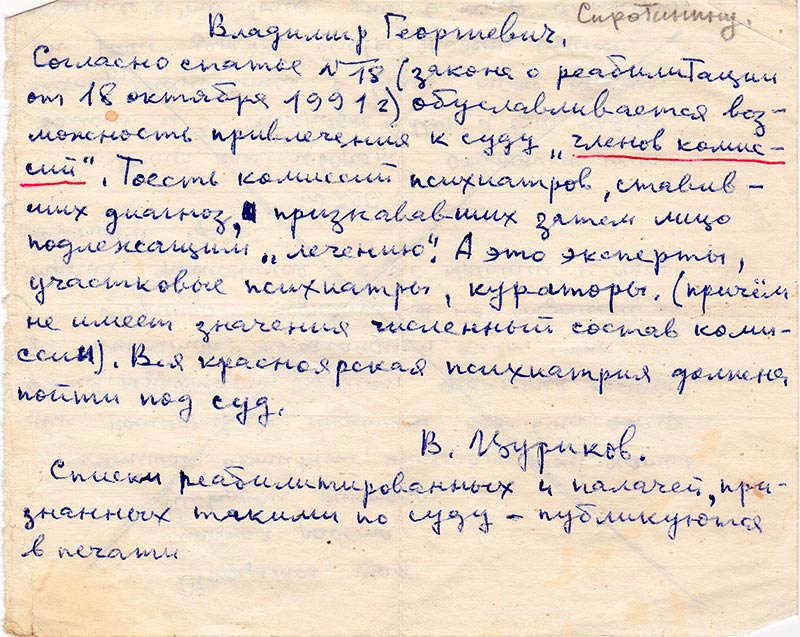 Сиротинину.
Владимир Георгиевич.
Согласно статье №18 (закона о реабилитации
от 18 октября 1991г) обуславливается воз-
можность привлечения к суду „членов комис-
сий". Тоесть комиссий психиатров, ставив-
ших диагноз, и призкававших затем лицо
подлежащим „лечению". А это эксперты,
участковые психиатры, кураторы. (причём
не имеет значения численный состав коми-
ссии). Вся красноярская психиатрия должна
пойти под суд.
В. Цуриков.
Списки реабилитированных и палачей, при-
знанных такими по суду – публикуются
в печати